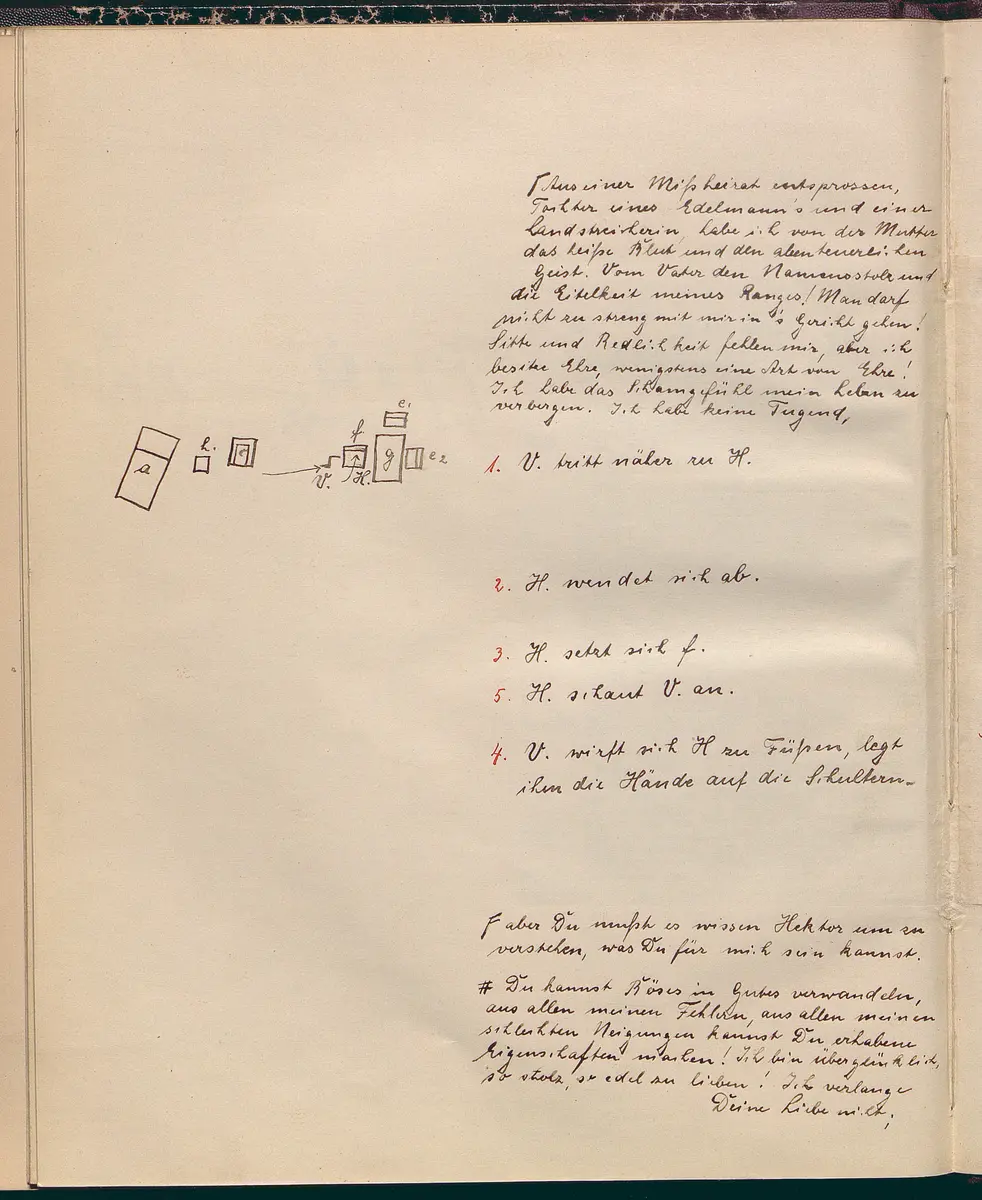 Γ Aus einer Mißheirat entsprossen,
Tochter eines Edelmann's und einer
Landstreicherin, habe ich von der Mutter
das heiße Blut und den abenteuerlichen
Geist. Vom Vater den Namensstolz und
die Eitelkeit meines Ranges! Man darf
nicht zu streng mit mir in's Gericht gehen!
Sitte und Redlichkeit fehlen mir, aber ich
besitze Ehre, wenigstens eine Art von Ehre!
Ich habe das Schamgefühl mein Leben zu
verbergen. Ich habe keine Tugend,
a h. e V. f H. g e1 e2
1. V. tritt näher zu H.
2. H. wendet sich ab.
3. H. setzt sich f.
5. H. schaut V. an.
4. V. wirft sich H zu Füßen, legt
ihm die Hände auf die Schultern
Γ aber Du mußt es wissen Hektor um zu
verstehen, was Du für mich sein kannst.
# Du kannst Böses in Gutes verwandeln,
aus allen meinen Fehlern, aus allen meinen
schlechten Neigungen kannst Du erhabene
Eigenschaften machen! Ich bin überglücklich,
so stolz, so edel zu lieben! Ich verlange
Deine Liebe nicht;